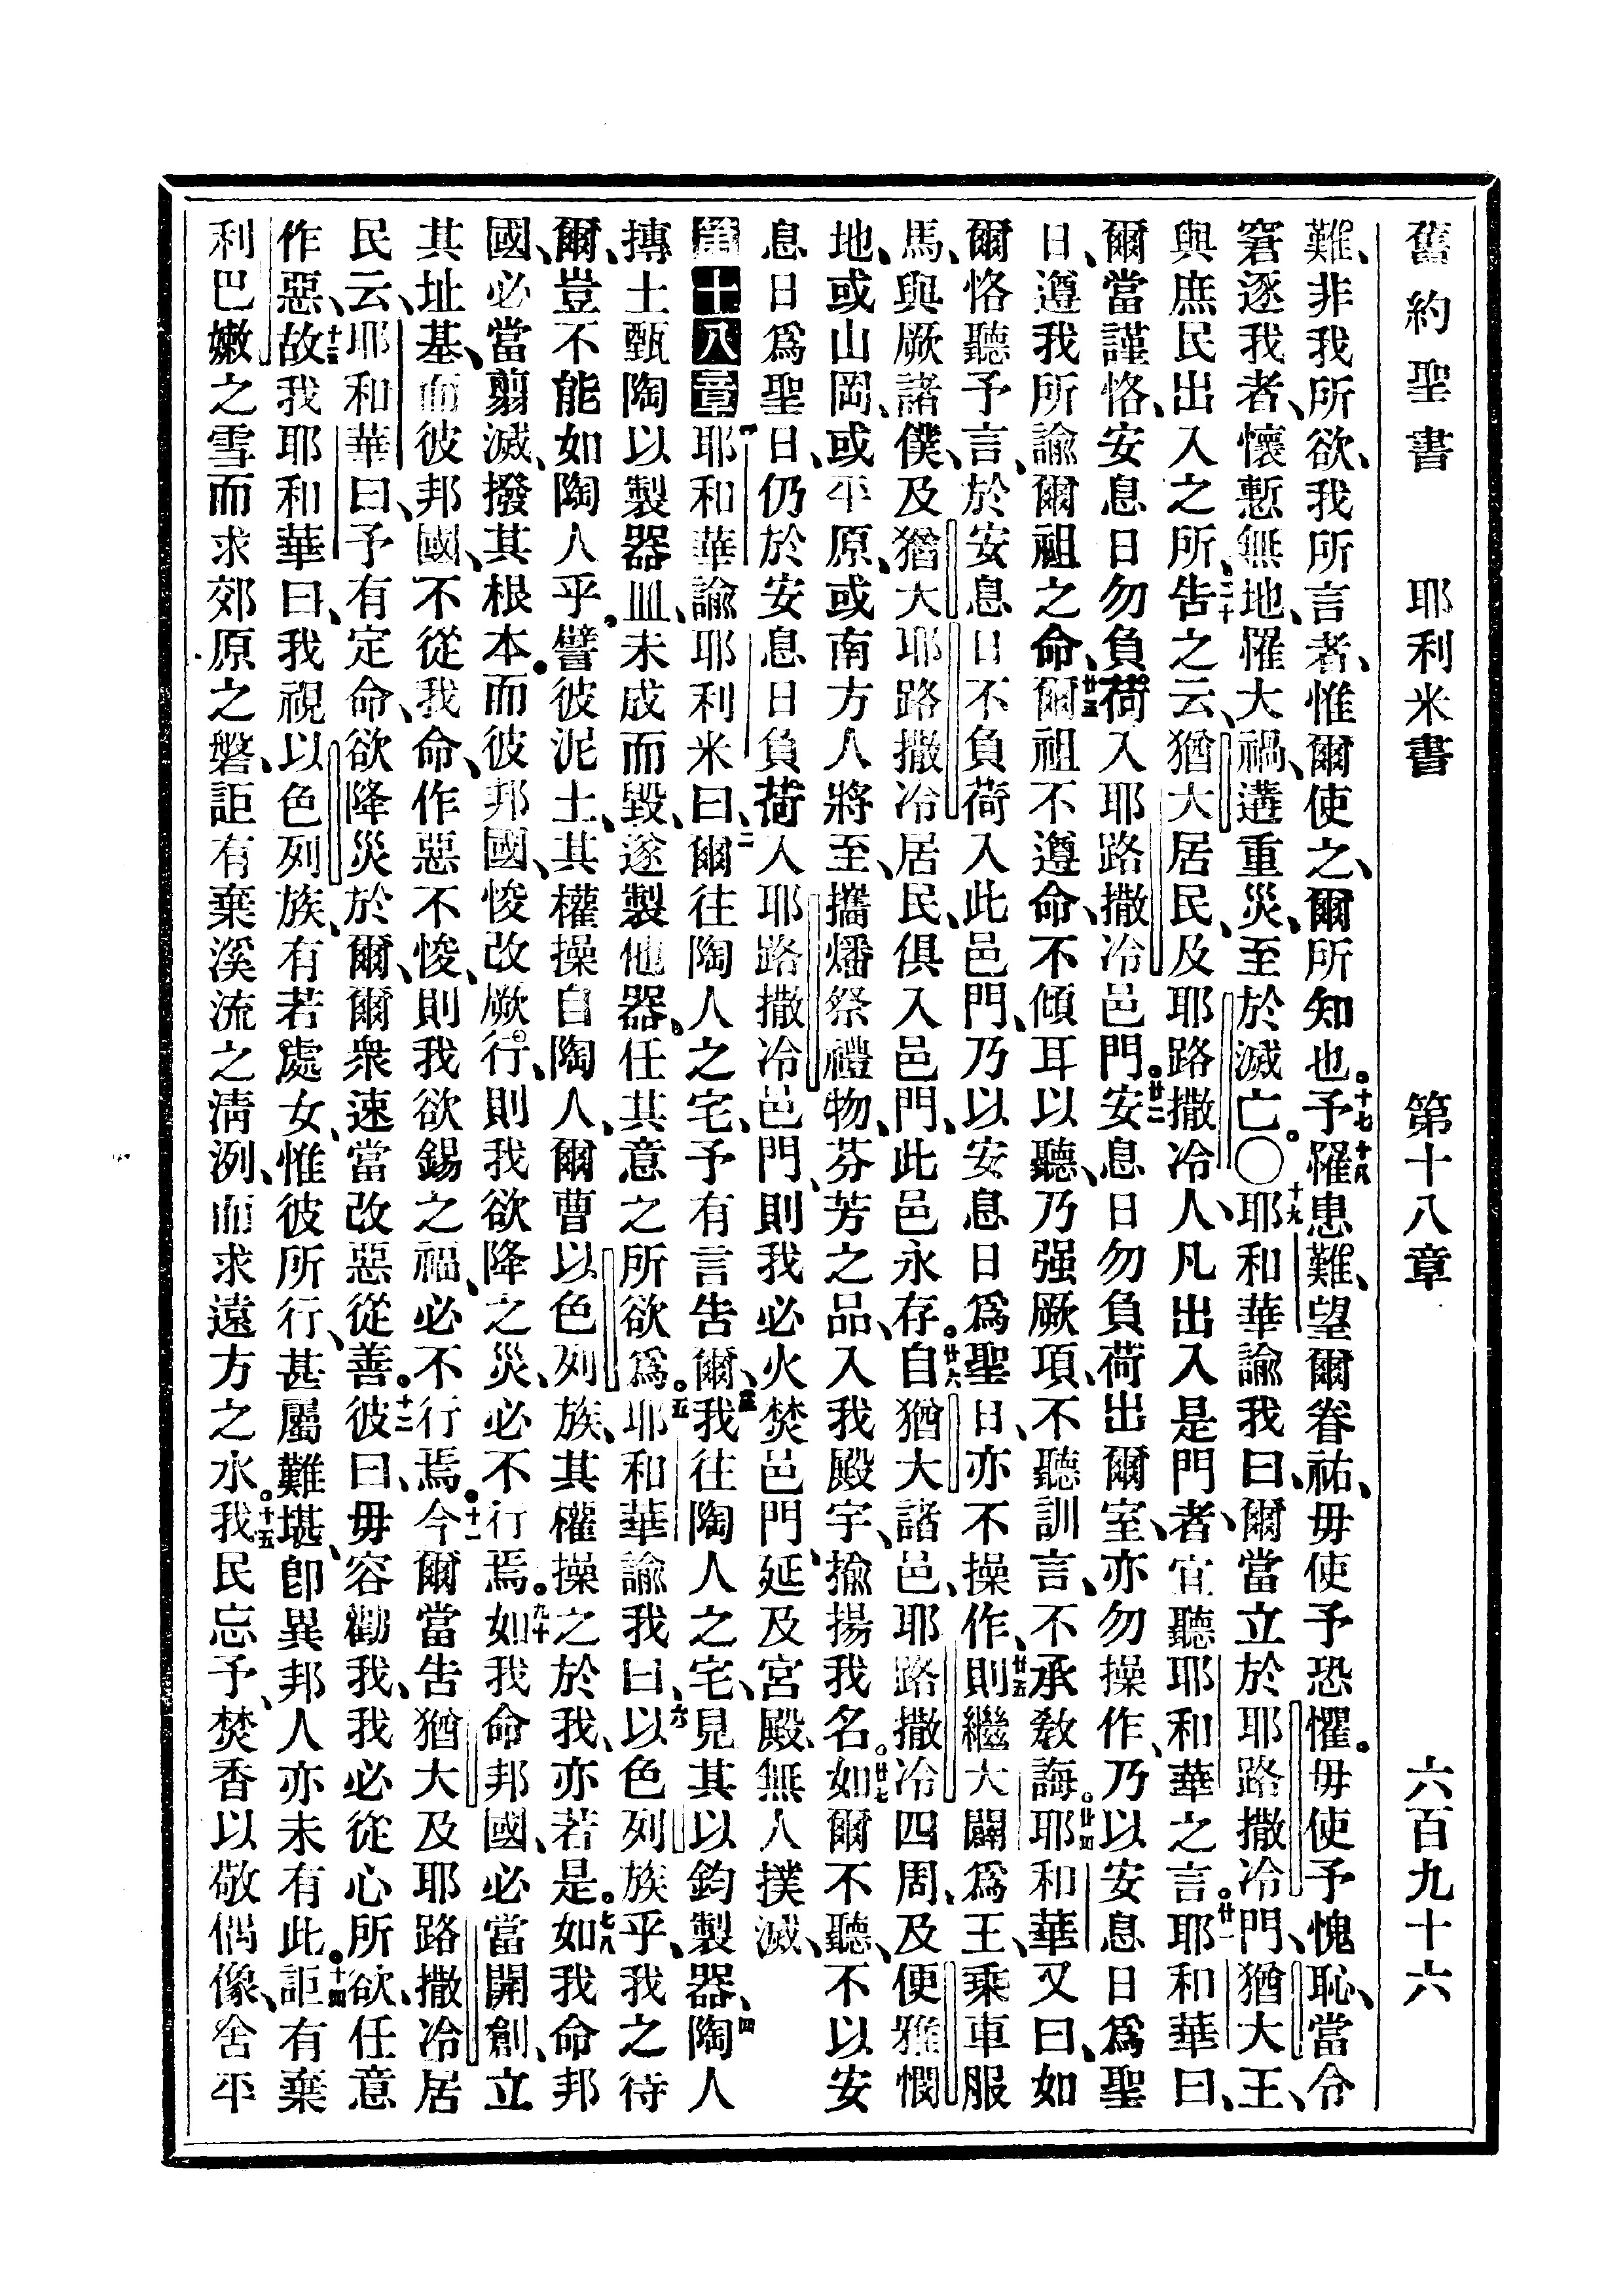 舊約聖書 耶利米書 第十八章 六百九十六
難、非我所欲、我所言者、惟爾使之、爾所知也。十七十八予罹患難、望爾眷祐、毋使予恐懼。毋使予愧恥、當令
窘逐我者、懷慙無地、罹大禍、遘重災、至於滅亡。〇十九耶和華諭我曰、爾當立於耶路撒冷門、猶大王、
與庶民出入之所、二十告之云、猶大居民、及耶路撒冷人、凡出入是門者、宜聽耶和華之言。廿一耶和華曰、
爾當謹恪、安息日勿負荷入耶路撒冷邑門。廿二安息日勿負荷出爾室、亦勿操作、乃以安息日爲聖
日、遵我所諭爾祖之命、廿三爾祖不遵命、不傾耳以聽、乃强厥項、不聽訓言、不承敎誨。廿四耶和華又曰、如
爾恪聽予言、於安息日不負荷入此邑門、乃以安息日爲聖日、亦不操作、廿五則繼大闢爲王、乘車服
馬、與厥諸僕、及猶大耶路撒冷居民、俱入邑門、此邑永存。廿六自猶大諸邑、耶路撒冷四周、及便雅憫
地、或山岡、或平原、或南方人將至、攜燔祭禮物、芬芳之品、入我殿宇、揄揚我名。廿七如爾不聽、不以安
息日爲聖日、仍於安息日負荷入耶路撒冷邑門、則我必火焚邑門、延及宮殿、無人撲滅、
第十八章 一耶和華諭耶利米曰、二爾往陶人之宅、予有言告爾、三我往陶人之宅、見其以鈞製器、四陶人
摶土甄陶以製器皿、未成而毀、遂製他器。任其意之所欲爲。五耶和華諭我曰、六以色列族乎、我之待
爾、豈不能如陶人乎。譬彼泥土、其權操自陶人、爾曹以色列族、其權操之於我、亦若是。七八如我命邦
國、必當翦滅、撥其根本。而彼邦國、悛改厥行、則我欲降之災、必不行焉。九十如我命邦國、必當開創、立
其址基、而彼邦國、不從我命、作惡不悛、則我欲錫之福、必不行焉。十一今爾當告猶大及耶路撒冷居
民云、耶和華曰、予有定命、欲降災於爾、爾衆速當改惡從善。十二彼曰、毋容勸我、我必從心所欲、任意
作惡、十三故我耶和華曰、我視以色列族、有若處女、惟彼所行、甚屬難堪、卽異邦人亦未有此。十四詎有棄
利巴嫩之雪而求郊原之磐、詎有棄溪流之淸洌、而求遠方之水。十五我民忘予、焚香以敬偶像、舍平